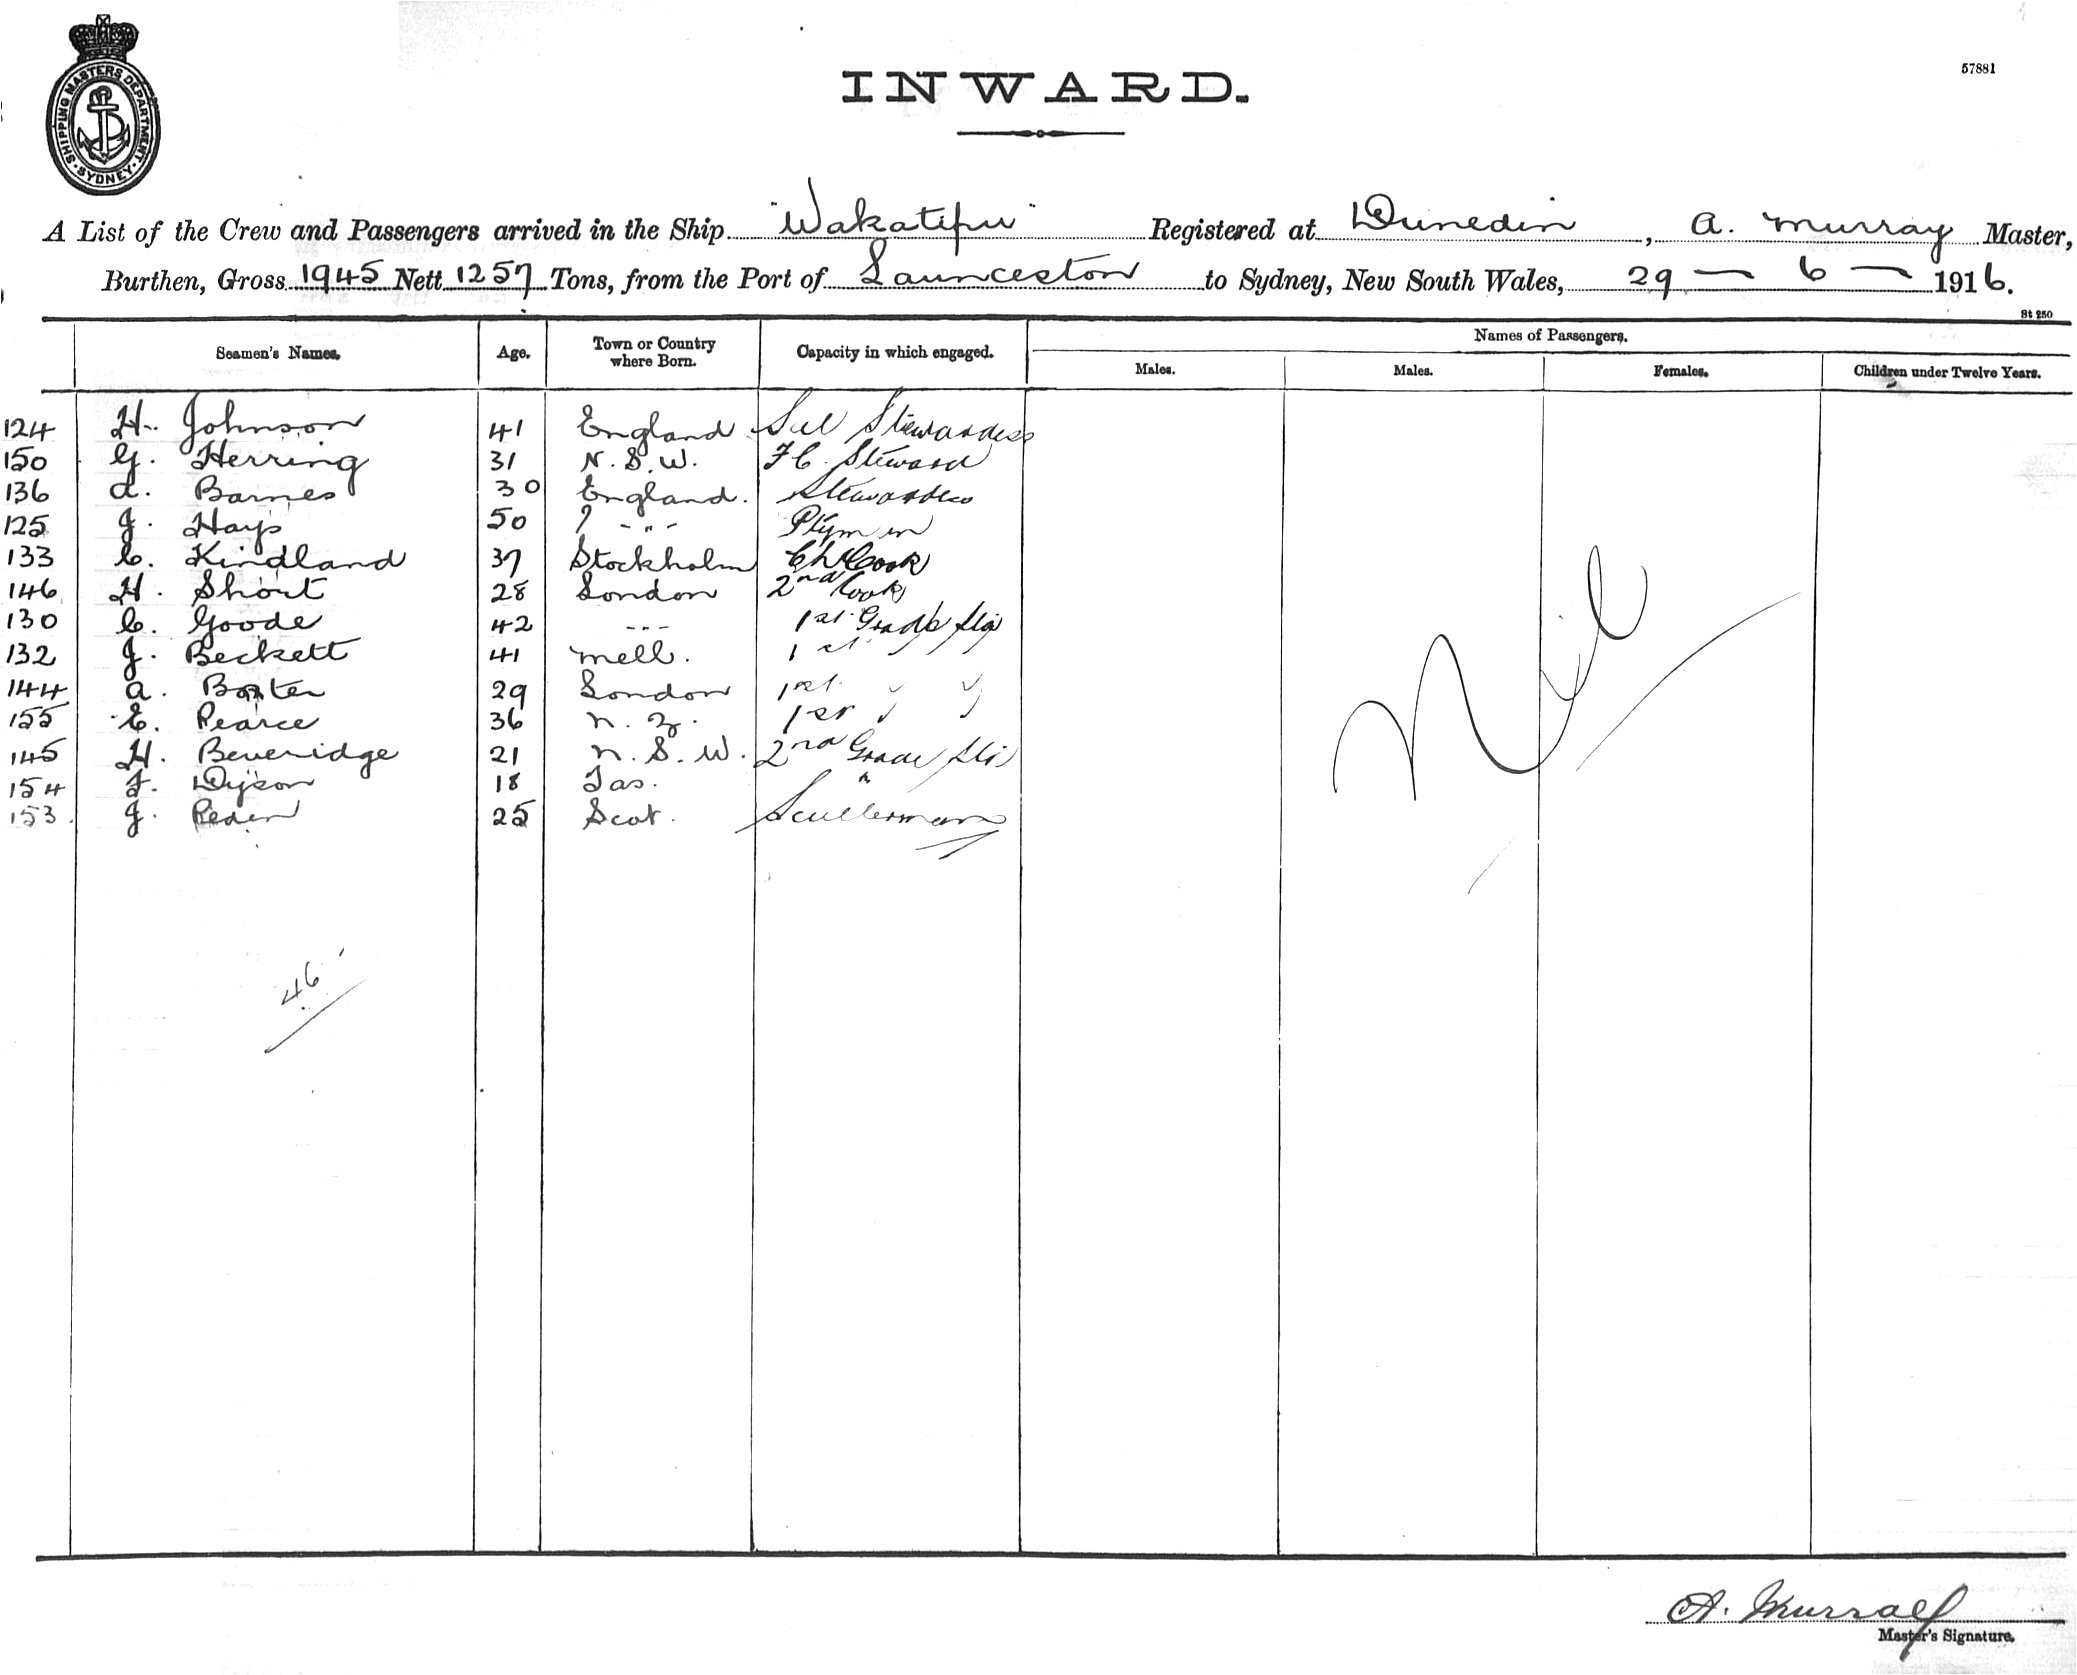 57881
SHIPPING MASTERS DEPARTMENT
SYDNEY
INWARD.
A List of the Crew and Passengers arrived in the Ship "Wakatipu" Registered at Dunedin, A. Murray Master,
Burthen, Gross 1945 Nett 1257 Tons, from the Port of Launceston to Sydney, New South Wales, 29 - 6 - 1916.
St 250
Seamen's Names. Age. Town or Country where Born. Capacity in which engaged. Names of Passengers.
Males. Males. Females. Children under Twelve Years.
124 H. Johnson 41 England Stewardess
150 G. Herring 31 N.S.W. F.C. Steward
136 A. Barnes 30 England. Stewardess
125 J. Hays 50 ? -"-
133 C. Kindland 37 Stockholm Ch Cook
146 H. Short 28 London 2nd Cook
130 C. Goode 42 --- 1st Grade
132 J. Beckett 41 Mell. 1st
144 A. Baxter 29 London 1st
155 E. Pearce 36 N.Z. 1st
145 H. Beveridge 21 N.S.W. 2nd Grade
154 F. Dyson 18 Tas. "
153 J. Peden 25 Scot. Scullerman
Nil
46
A. Murray
Master's Signature.